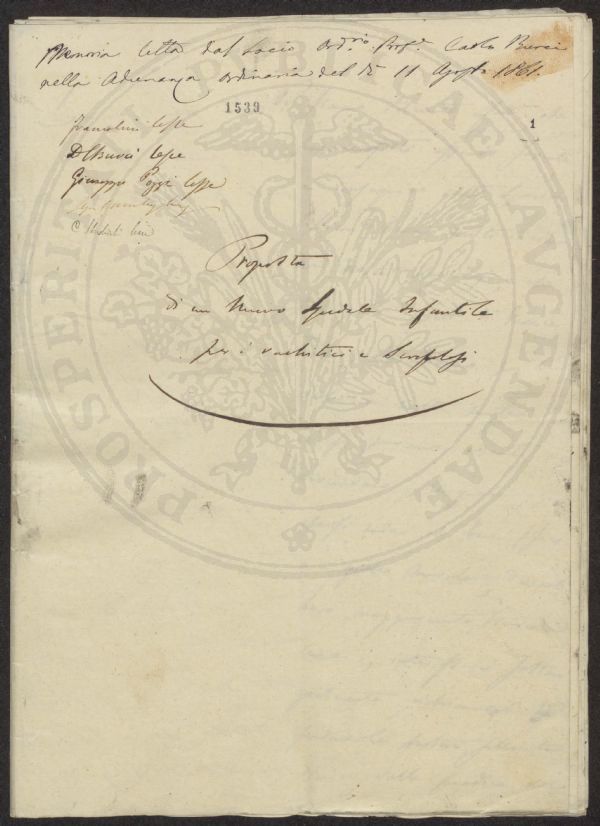 Memoria letta dal Socio Ord.rio Prof.e Carlo Burci
nella Adunanza ordinaria del dì 11 Agosto 1861.
1539
1
Francolini lesse
D Bucci lesse
Giuseppe Poggi lesse
C
Proposta
di un Nuovo Spedale Infantile
per i rachitici e Scrofolosi
PROSPERITATI PUBLICAE AUGENDAE